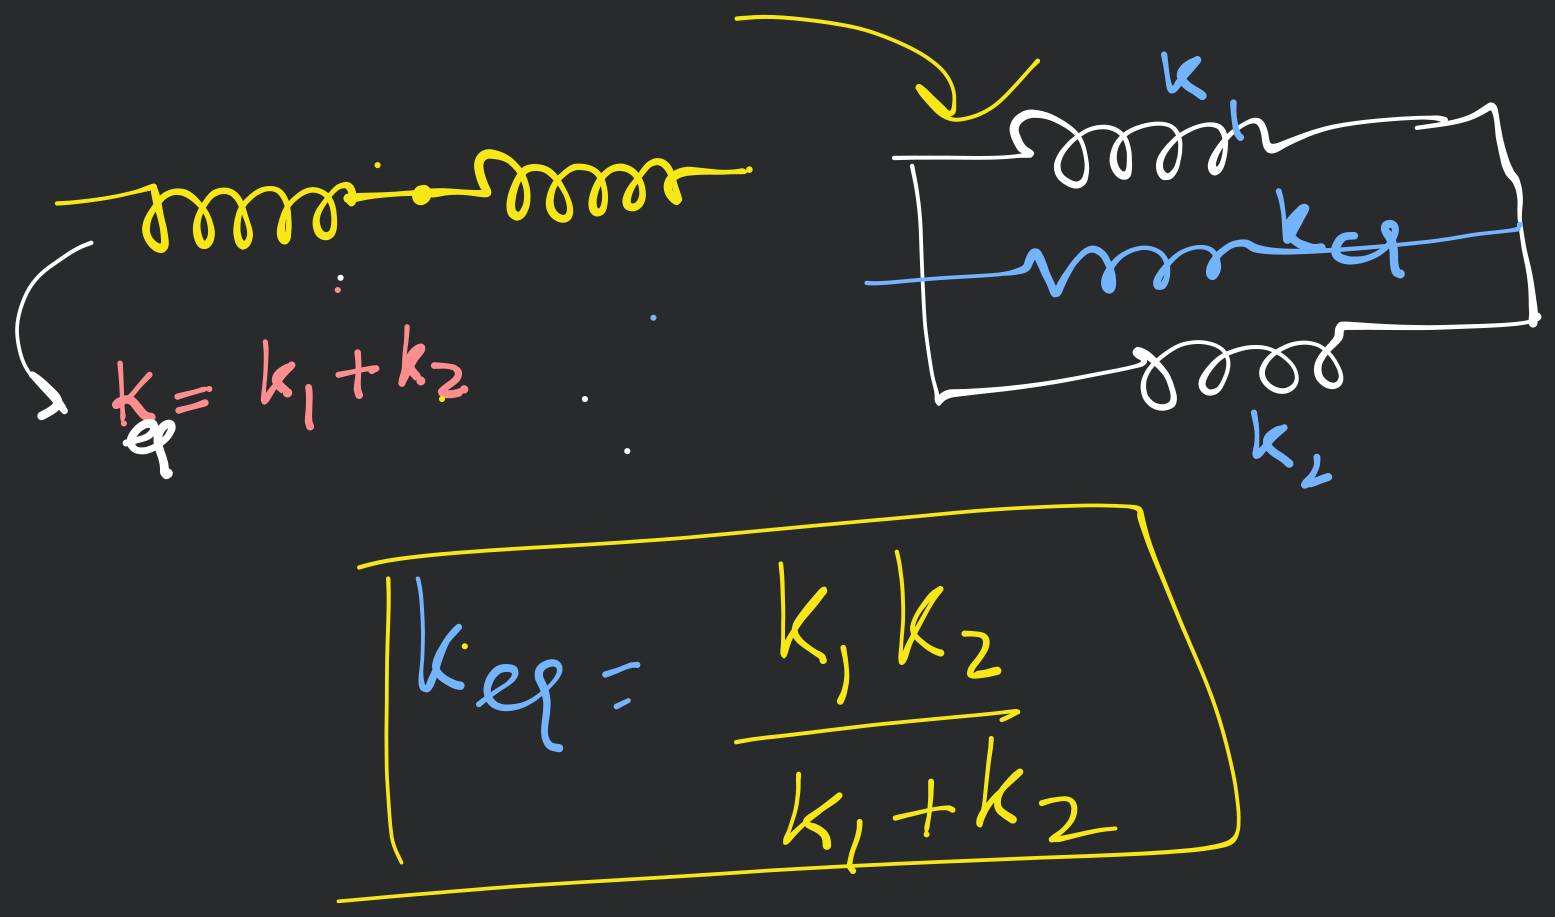 k₁
k_eq
k_eq = k₁ + k₂
k₂
k_eq = k₁ k₂ / k₁ + k₂